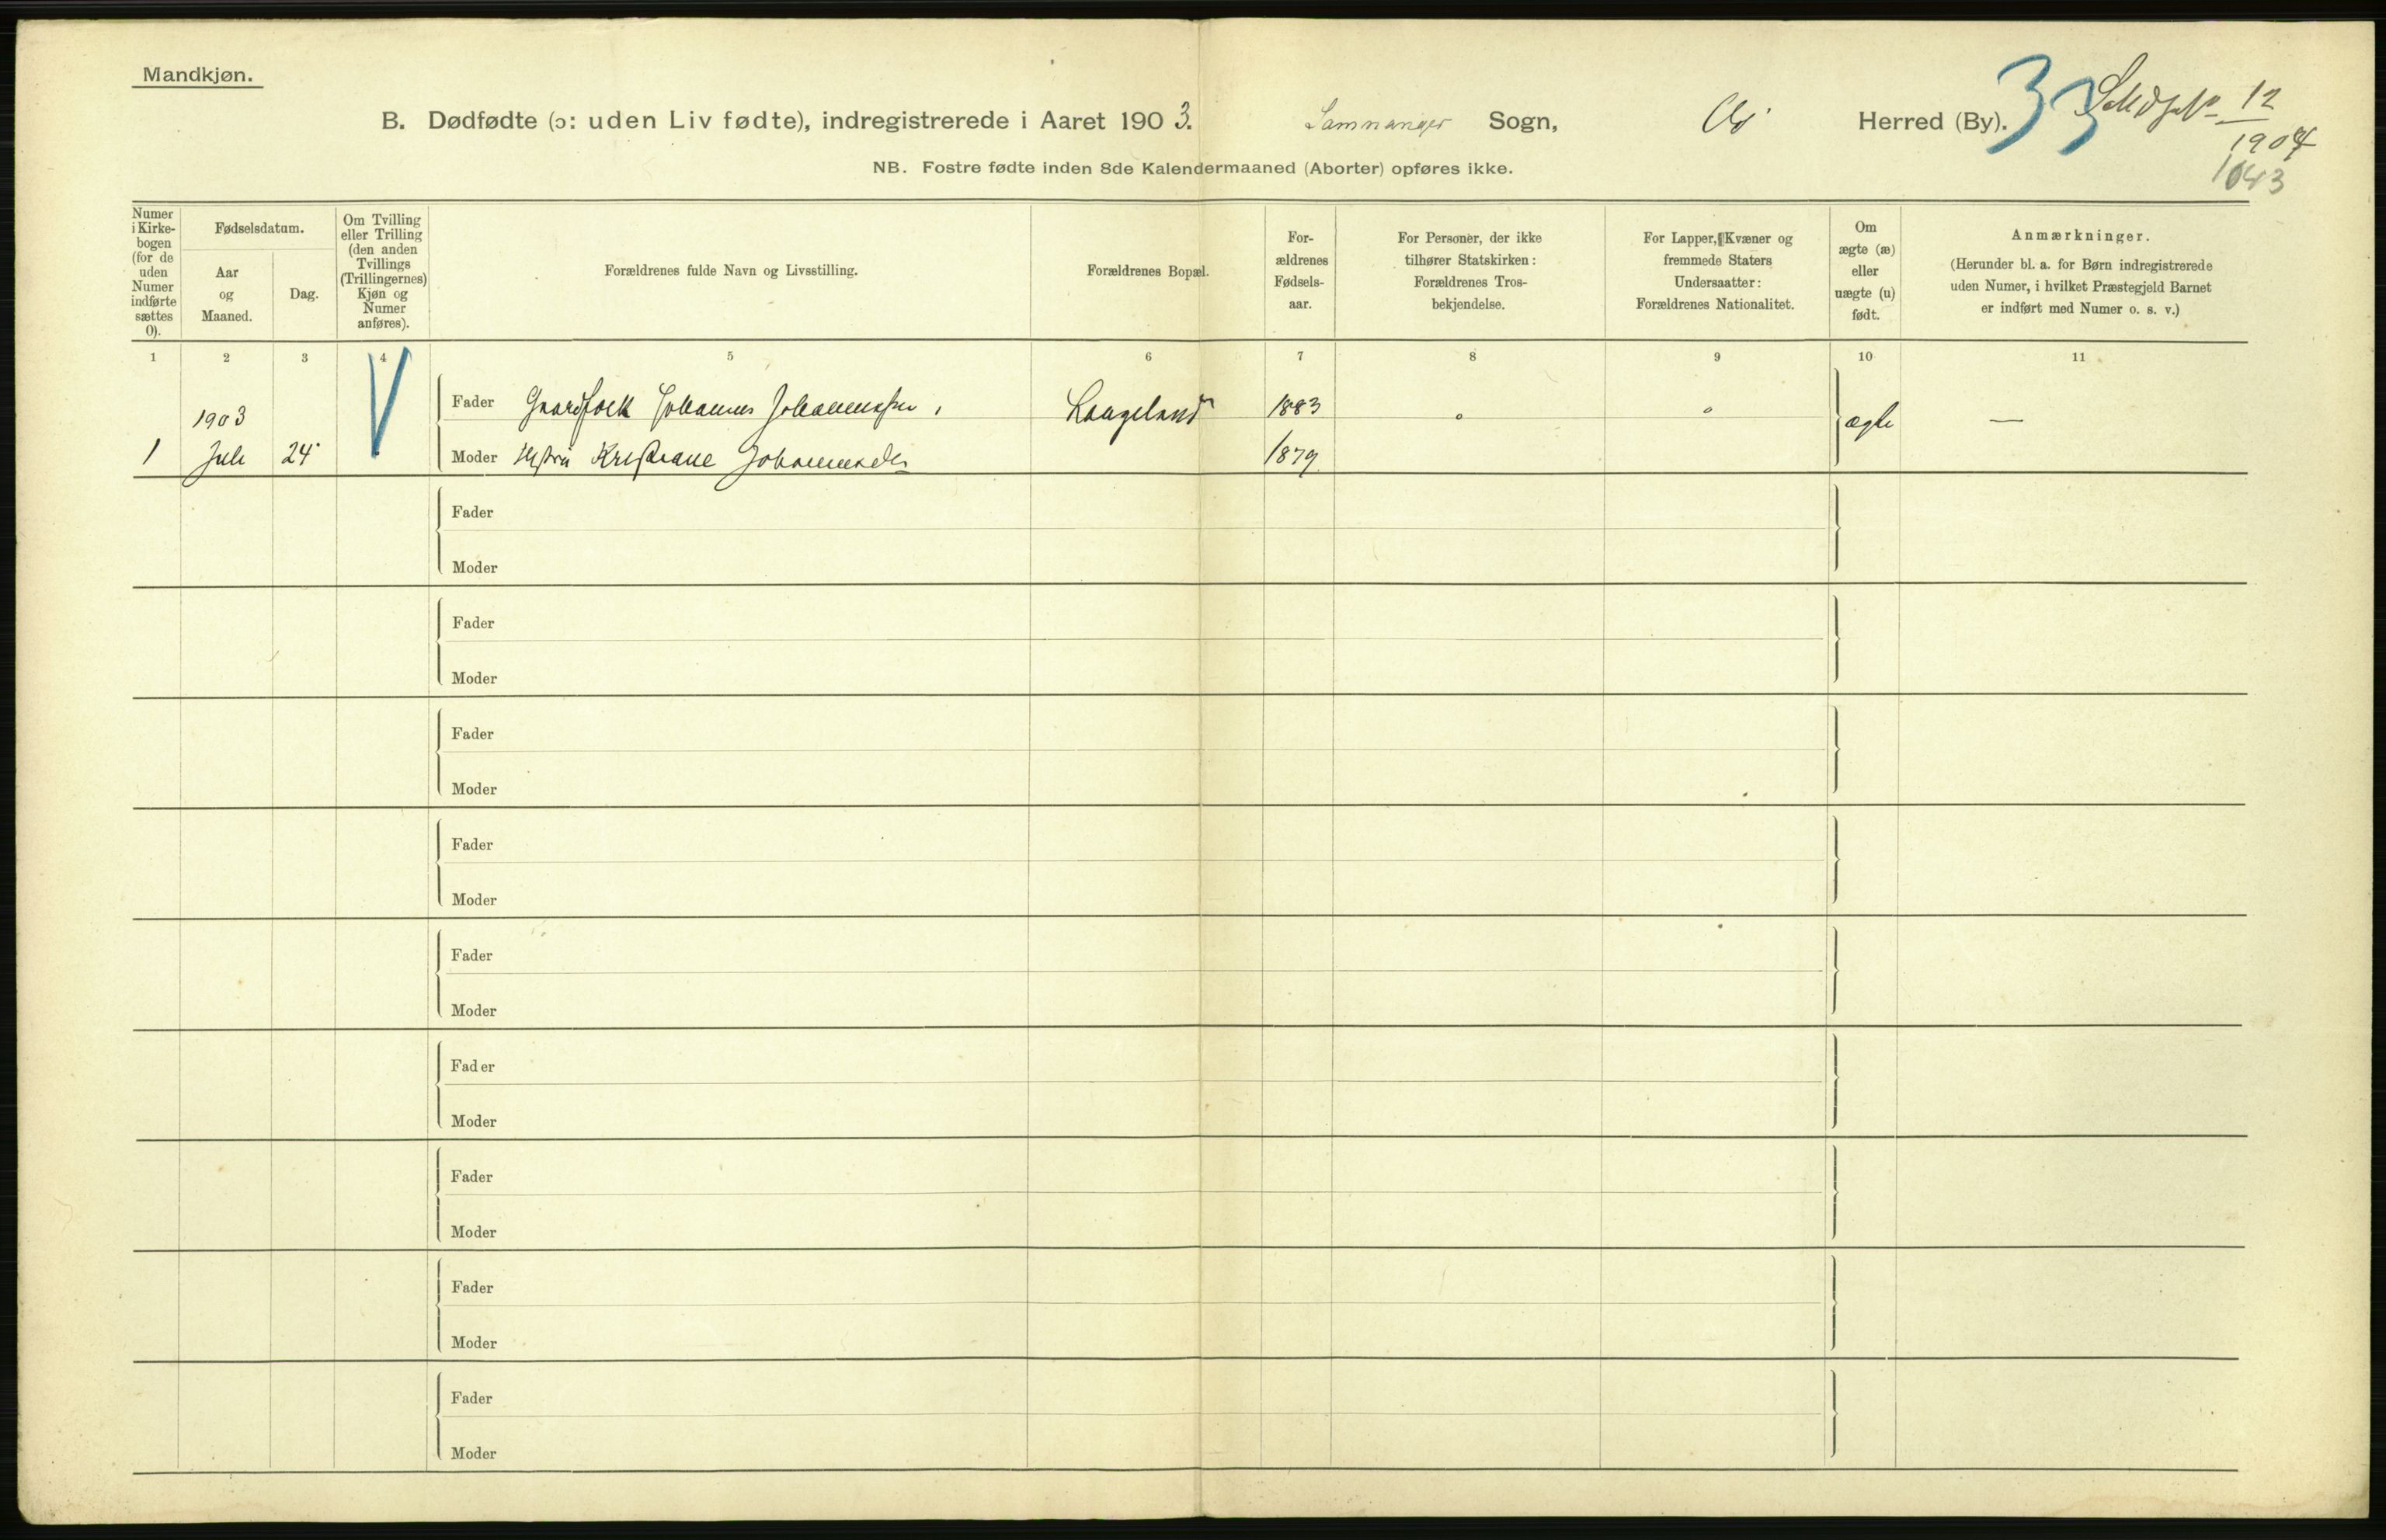 Mandkjøn.
B. Dødfødte (ɔ: uden Liv fødte), indregistrerede i Aaret 1903. Samnanger Sogn, Os Herred (By).
33
12
1904
1643
NB. Fostre fødte inden 8de Kalendermaaned (Aborter) opføres ikke.
Numer
i Kirke-
bogen
(for de
uden
Numer
indførte
sættes
0).
Fødselsdatum.
Aar
og
Maaned.
Dag.
Om Tvilling
eller Trilling
(den anden
Tvillings
(Trillingernes)
Kjøn og
Numer
anføres).
Forældrenes fulde Navn og Livsstilling.
Forældrenes Bopæl.
For-
ældrenes
Fødsels-
aar.
For Personer, der ikke
tilhører Statskirken:
Forældrenes Tros-
bekjendelse.
For Lapper, Kvæner og
fremmede Staters
Undersaatter:
Forældrenes Nationalitet.
Om
ægte (æ)
eller
uægte (u)
født.
Anmærkninger.
(Herunder bl. a. for Børn indregistrerede
uden Numer, i hvilket Præstegjeld Barnet
er indført med Numer o. s. v.)
1 2 3 4 5 6 7 8 9 10 11
1903 Fader Gaardfolk Johannes Johannessen, Langeland 1883 ægte —
1 Juli 24 Moder Kristiane Johannesdr 1879
Fader
Moder
Fader
Moder
Fader
Moder
Fader
Moder
Fader
Moder
Fader
Moder
Fader
Moder
Fader
Moder
Fader
Moder